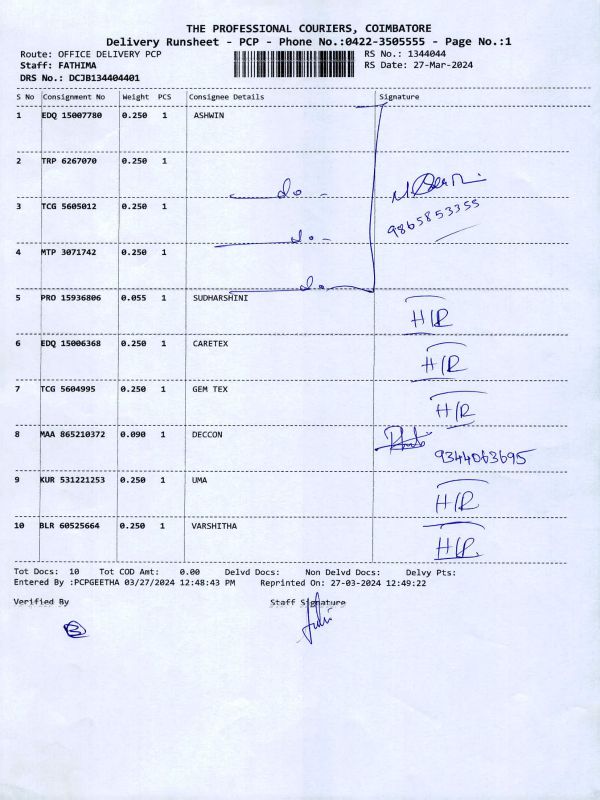 THE PROFESSIONAL COURIERS, COIMBATORE
Delivery Runsheet - PCP - Phone No.:0422-3505555 - Page No.:1
Route: OFFICE DELIVERY PCP RS No.: 1344044
Staff: FATHIMA RS Date: 27-Mar-2024
DRS No.: DCJB134404401
S No Consignment No Weight PCS Consignee Details Signature
1 EDQ 15007780 0.250 1 ASHWIN
2 TRP 6267070 0.250 1
do
3 TCG 5605012 0.250 1
9865853355
do
4 MTP 3071742 0.250 1
do
5 PRO 15936806 0.055 1 SUDHARSHINI
H/R
6 EDQ 15006368 0.250 1 CARETEX
H/R
7 TCG 5604995 0.250 1 GEM TEX
H/R
8 MAA 865210372 0.090 1 DECCON
9344063695
9 KUR 531221253 0.250 1 UMA
H/R
10 BLR 60525664 0.250 1 VARSHITHA
H/R
Tot Docs: 10 Tot COD Amt: 0.00 Delvd Docs: Non Delvd Docs: Delvy Pts:
Entered By :PCPGEETHA 03/27/2024 12:48:43 PM Reprinted On: 27-03-2024 12:49:22
Verified By Staff Signature